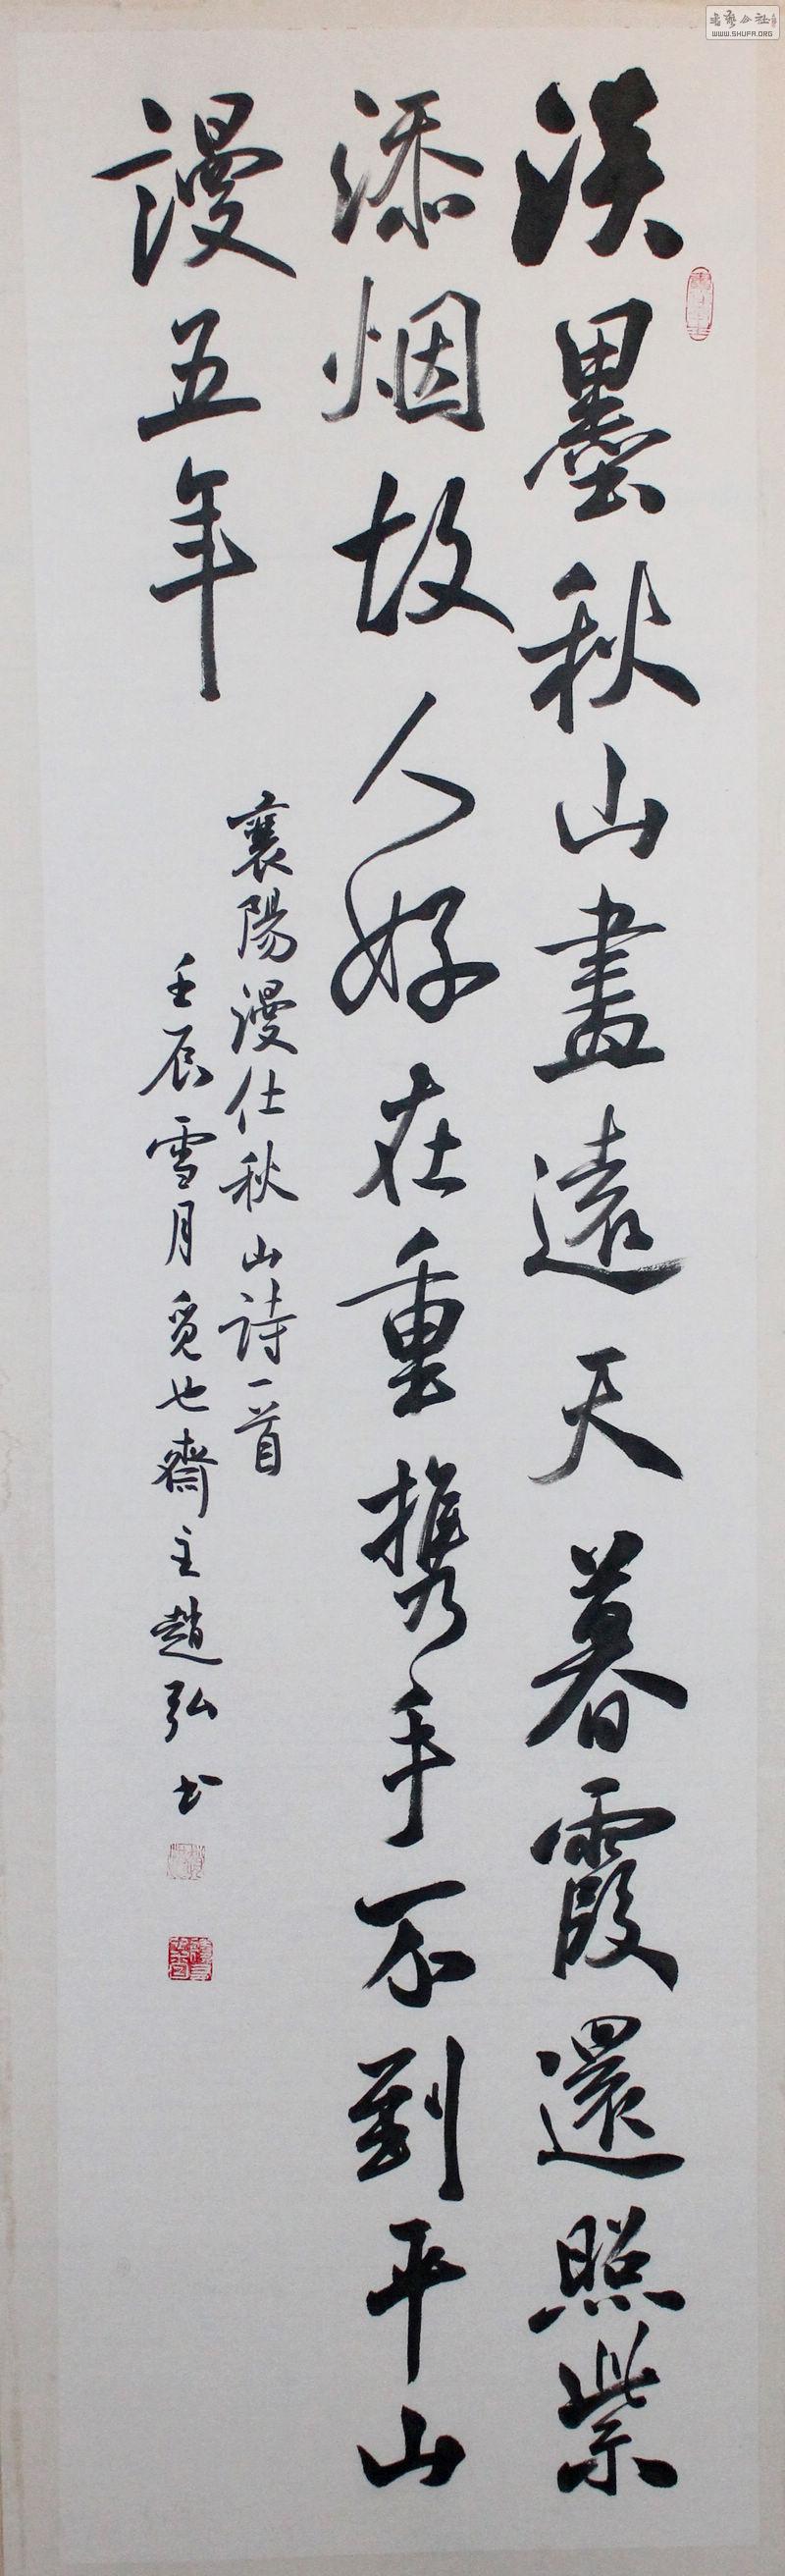 淡墨秋山畫遠天暮霞還照紫
添烟故人好在重携手不到平山
謾五年
襄陽漫仕秋山詩一首
壬辰雪月覓也齋主趙弘书
WWW.SHUFA.ORG